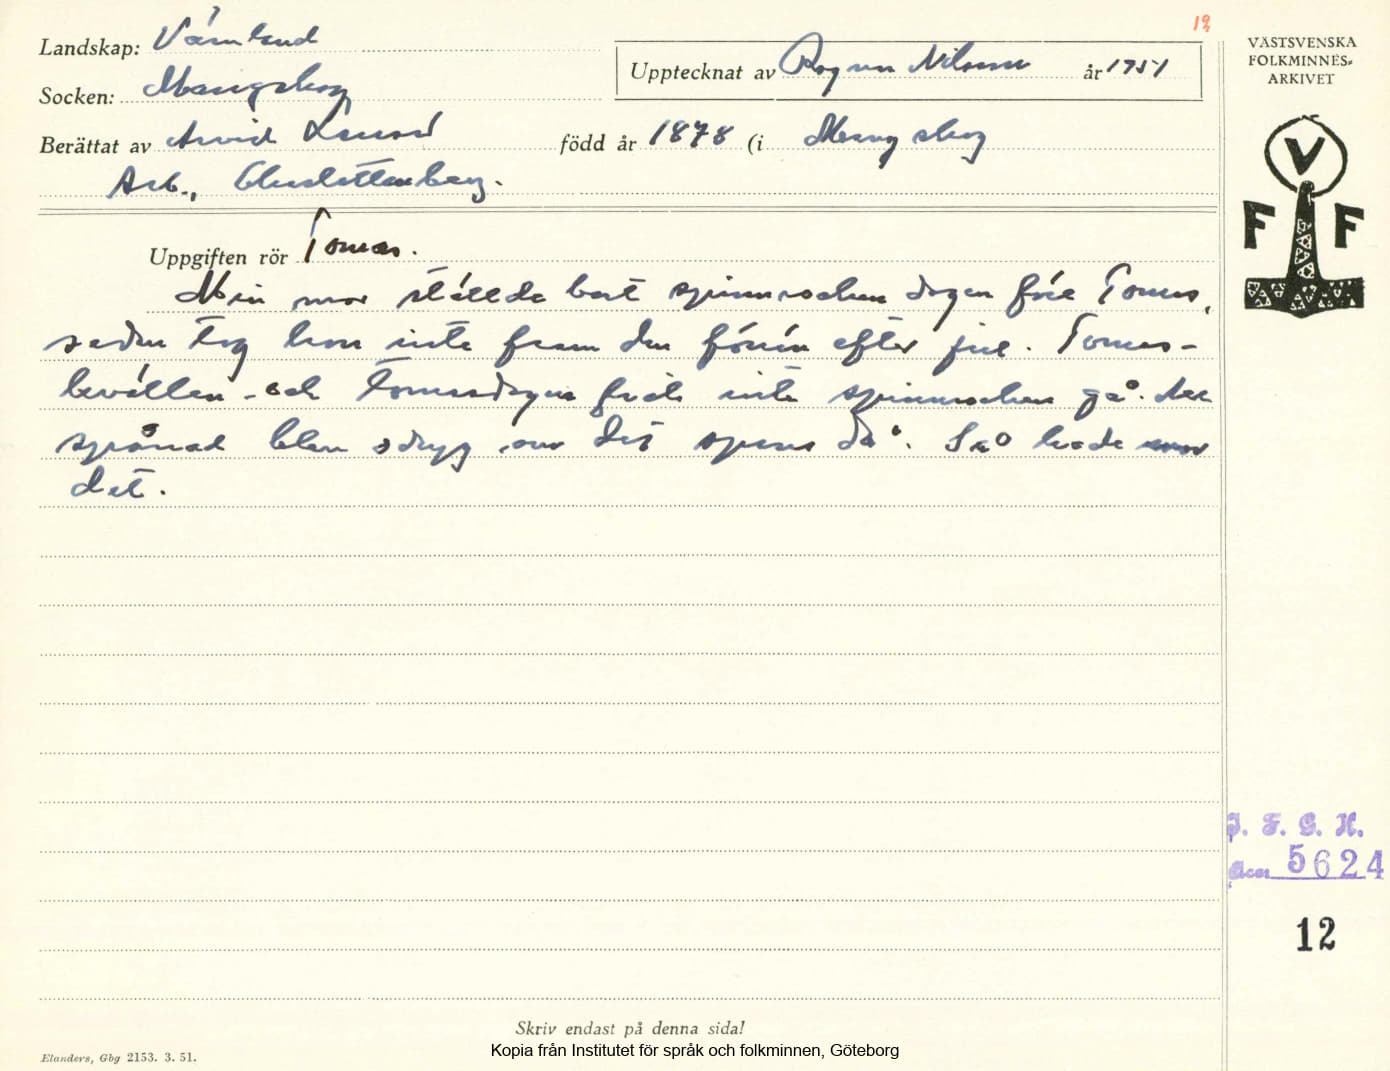 Landskap: Värmland
Socken: Mangskog
Upptecknat av Ragnar Nilsson år 1951
Berättat av Arvid född år 1878 (i Mangskog
Arb., Charlottenberg.
Uppgiften rör Tomas.
Min mor ställde bort spinnrocken dagen före Tomas,
sedan tog hon inte fram den förrn efter jul. Tomas-
kvällen och Tomasdagen fick inte spinnrocken gå.
spånad blev odryg om det spans då. Så hade mor
det.
Skriv endast på denna sida!
Elanders, Gbg 2153. 3. 51.
Kopia från Institutet för språk och folkminnen, Göteborg
12
VÄSTSVENSKA
FOLKMINNES-
ARKIVET
V
F F
I. F. G. H.
Acc. 5624
12